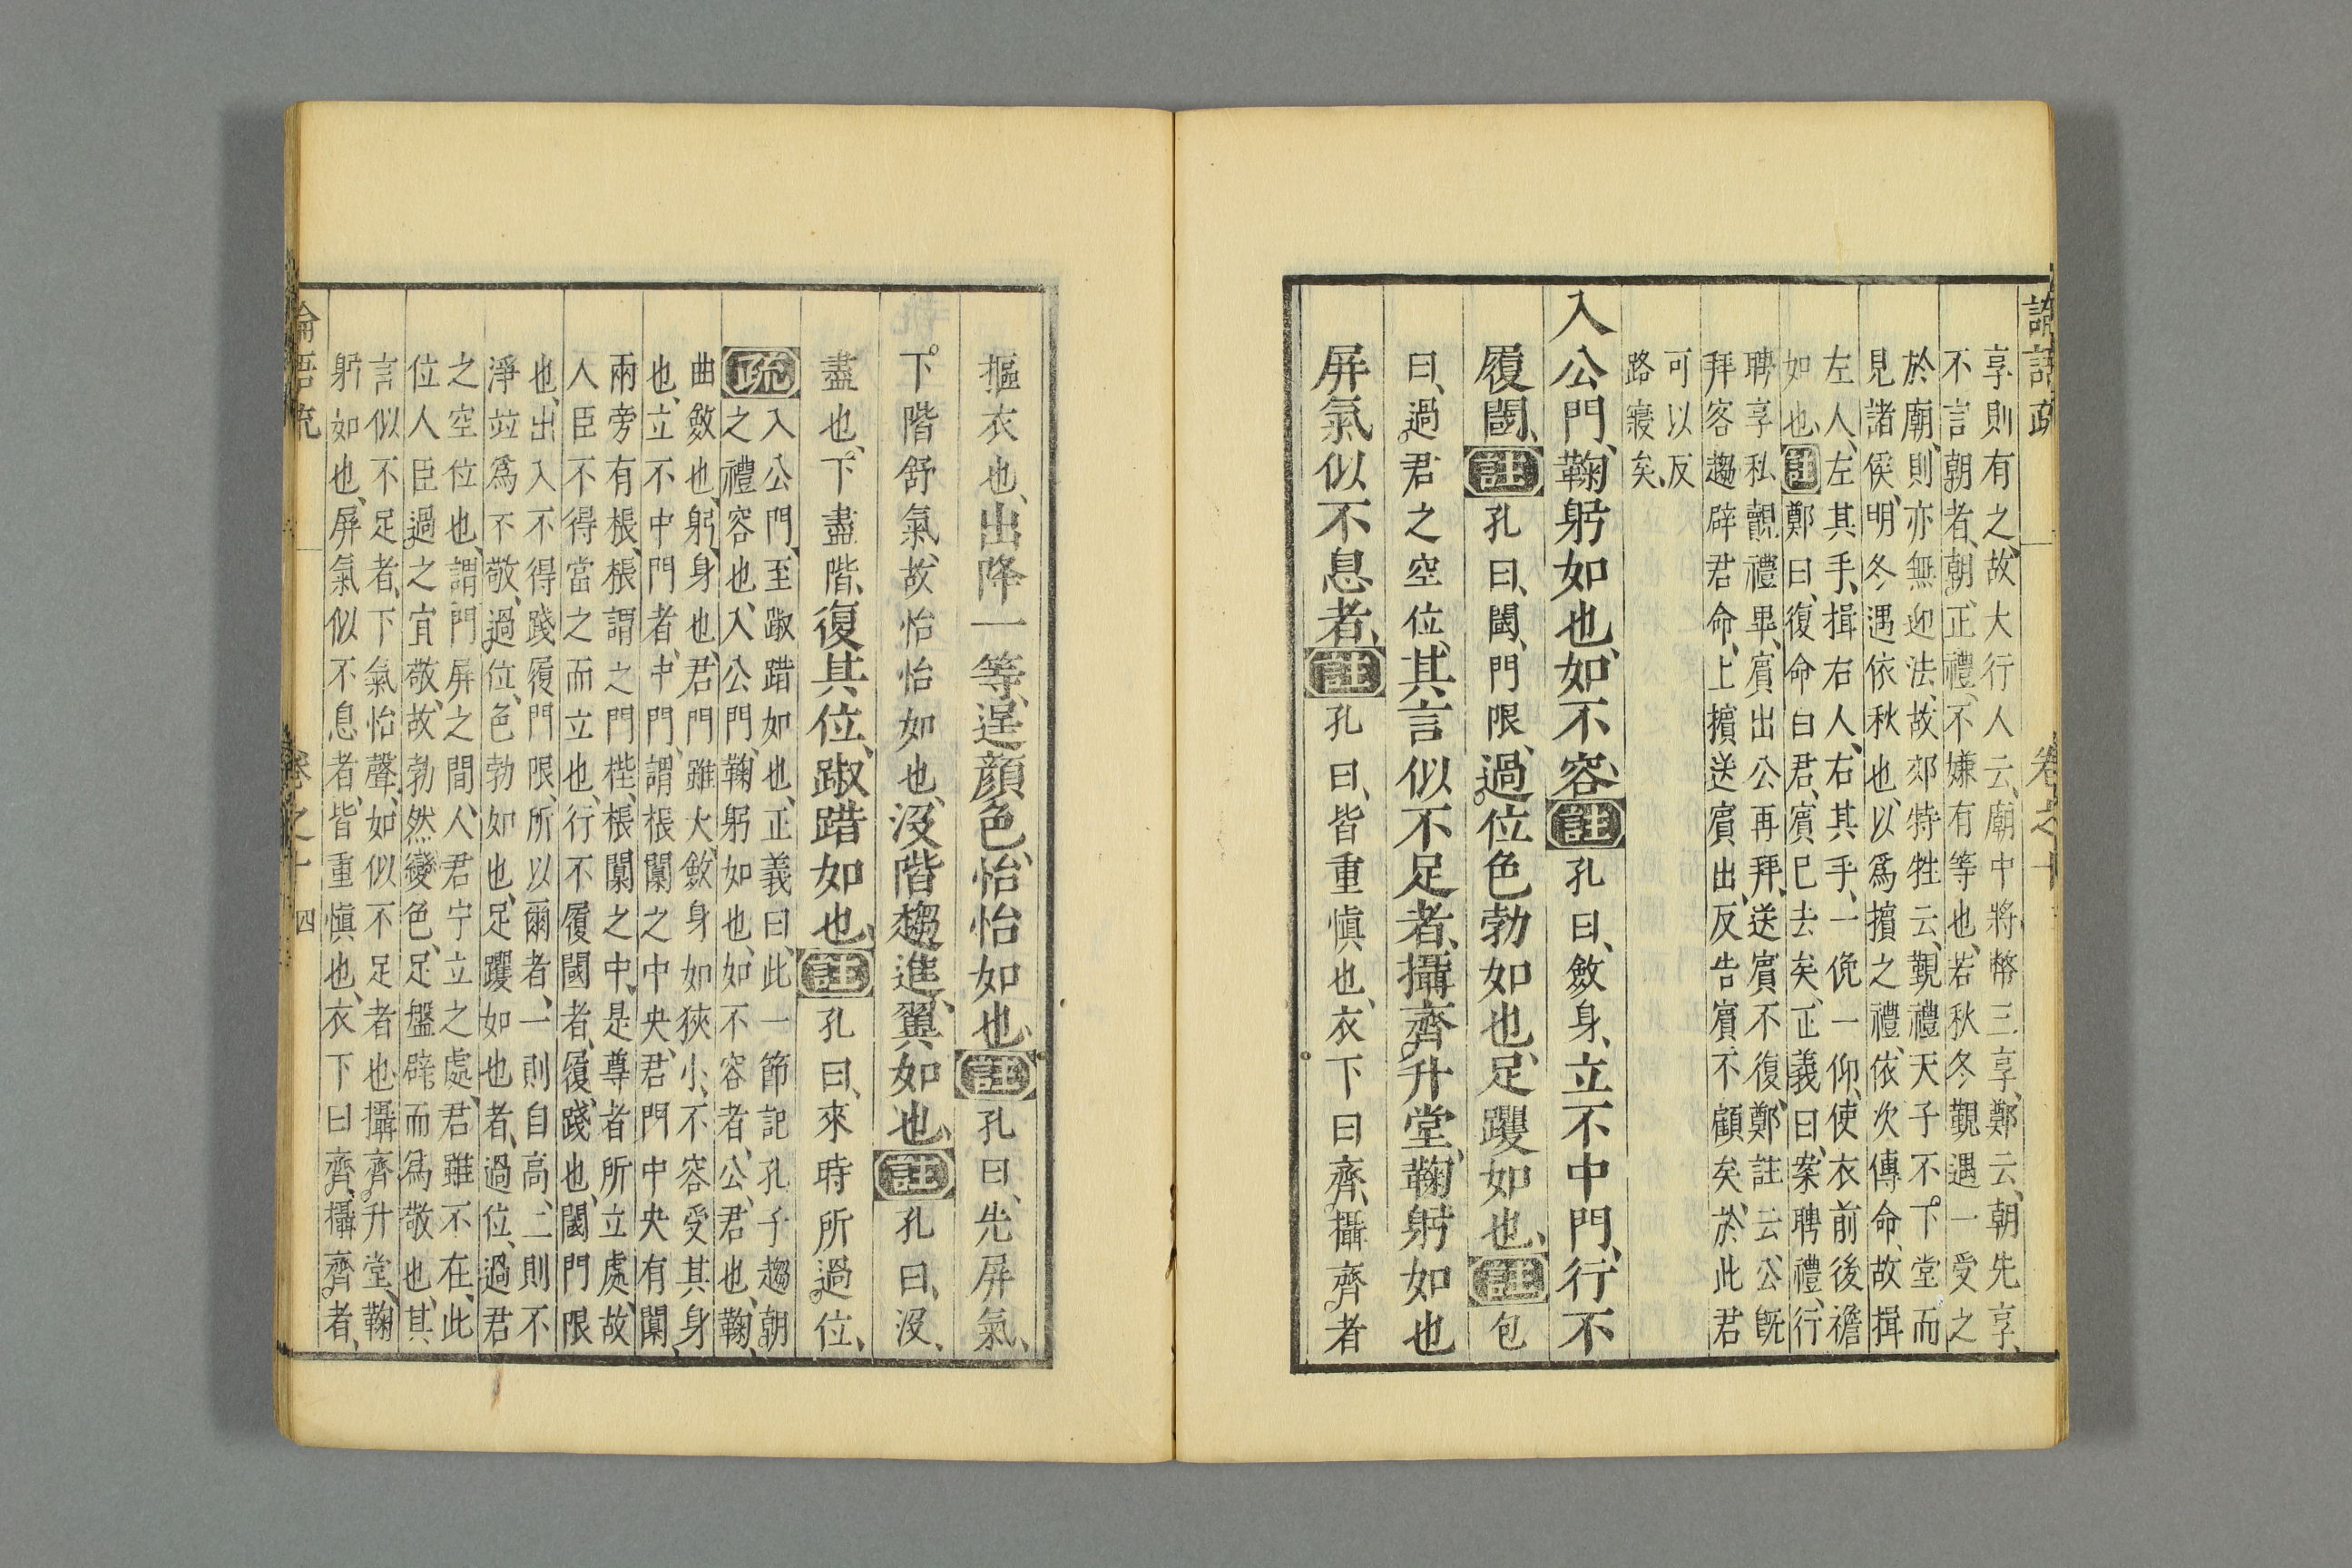 享則有之、故大行人云、廟中將幣三享、鄭云、朝先享、
不言朝者、朝正禮、不嫌有等也、若秋冬覲遇一受之
於廟、則亦無迎法、故郊特牲云、覲禮天子不下堂而
見諸侯、明冬遇依秋也、以爲擯之禮、依次傳命、故揖
左人、左其手、揖右人、右其手、一俛一仰、使衣前後襜
如也、註鄭曰、復命白君、賓已去矣、正義曰、案聘禮、行
聘享私覿禮畢、賓出公再拜、送賓不復、鄭註云、公既
拜客趨辟君命、上擯送賓出、反告賓不顧矣、於此君
可以反
路寢矣、
入公門、鞠躬如也、如不容、註孔曰、斂身、立不中門、行不
履閾、註孔曰、閾、門限、過位色勃如也、足躩如也、註包
曰、過君之空位、其言似不足者、攝齊升堂、鞠躬如也
屏氣似不息者、註孔曰、皆重愼也、衣下曰齊、攝齊者
摳衣也、出降一等、逞顔色、怡怡如也、註孔曰、先屏氣、
下階舒氣、故怡怡如也、沒階趨進、翼如也、註孔曰、沒、
盡也、下盡階、復其位、踧踖如也、註孔曰、來時所過位、
疏入公門、至踧踖如也、正義曰、此一節記孔子趨朝
之禮容也、入公門、鞠躬如也、如不容者、公、君也、鞠、
曲斂也、躬、身也、君門雖大、斂身如狹小、不容受其身
也、立不中門者、中門、謂棖闑之中央、君門中央有闑、
兩旁有棖、棖謂之門梐、棖闑之中、是尊者所立處、故
人臣不得當之而立也、行不履閾者、履、踐也、閾門限
也、出入不得踐履門限、所以爾者、一則自高、二則不
淨竝爲不敬、過位、色勃如也、足躩如也者、過位、過君
之空位也、謂門屏之間、人君宁立之處、君雖不在、此
位人臣過之宜敬、故勃然變色、足盤辟而爲敬也、其
言似不足者、下氣怡聲、如似不足者也、攝齊升堂、鞠
躬如也、屏氣似不息者、皆重愼也、衣下曰齊、攝齊者、
卷之十 四